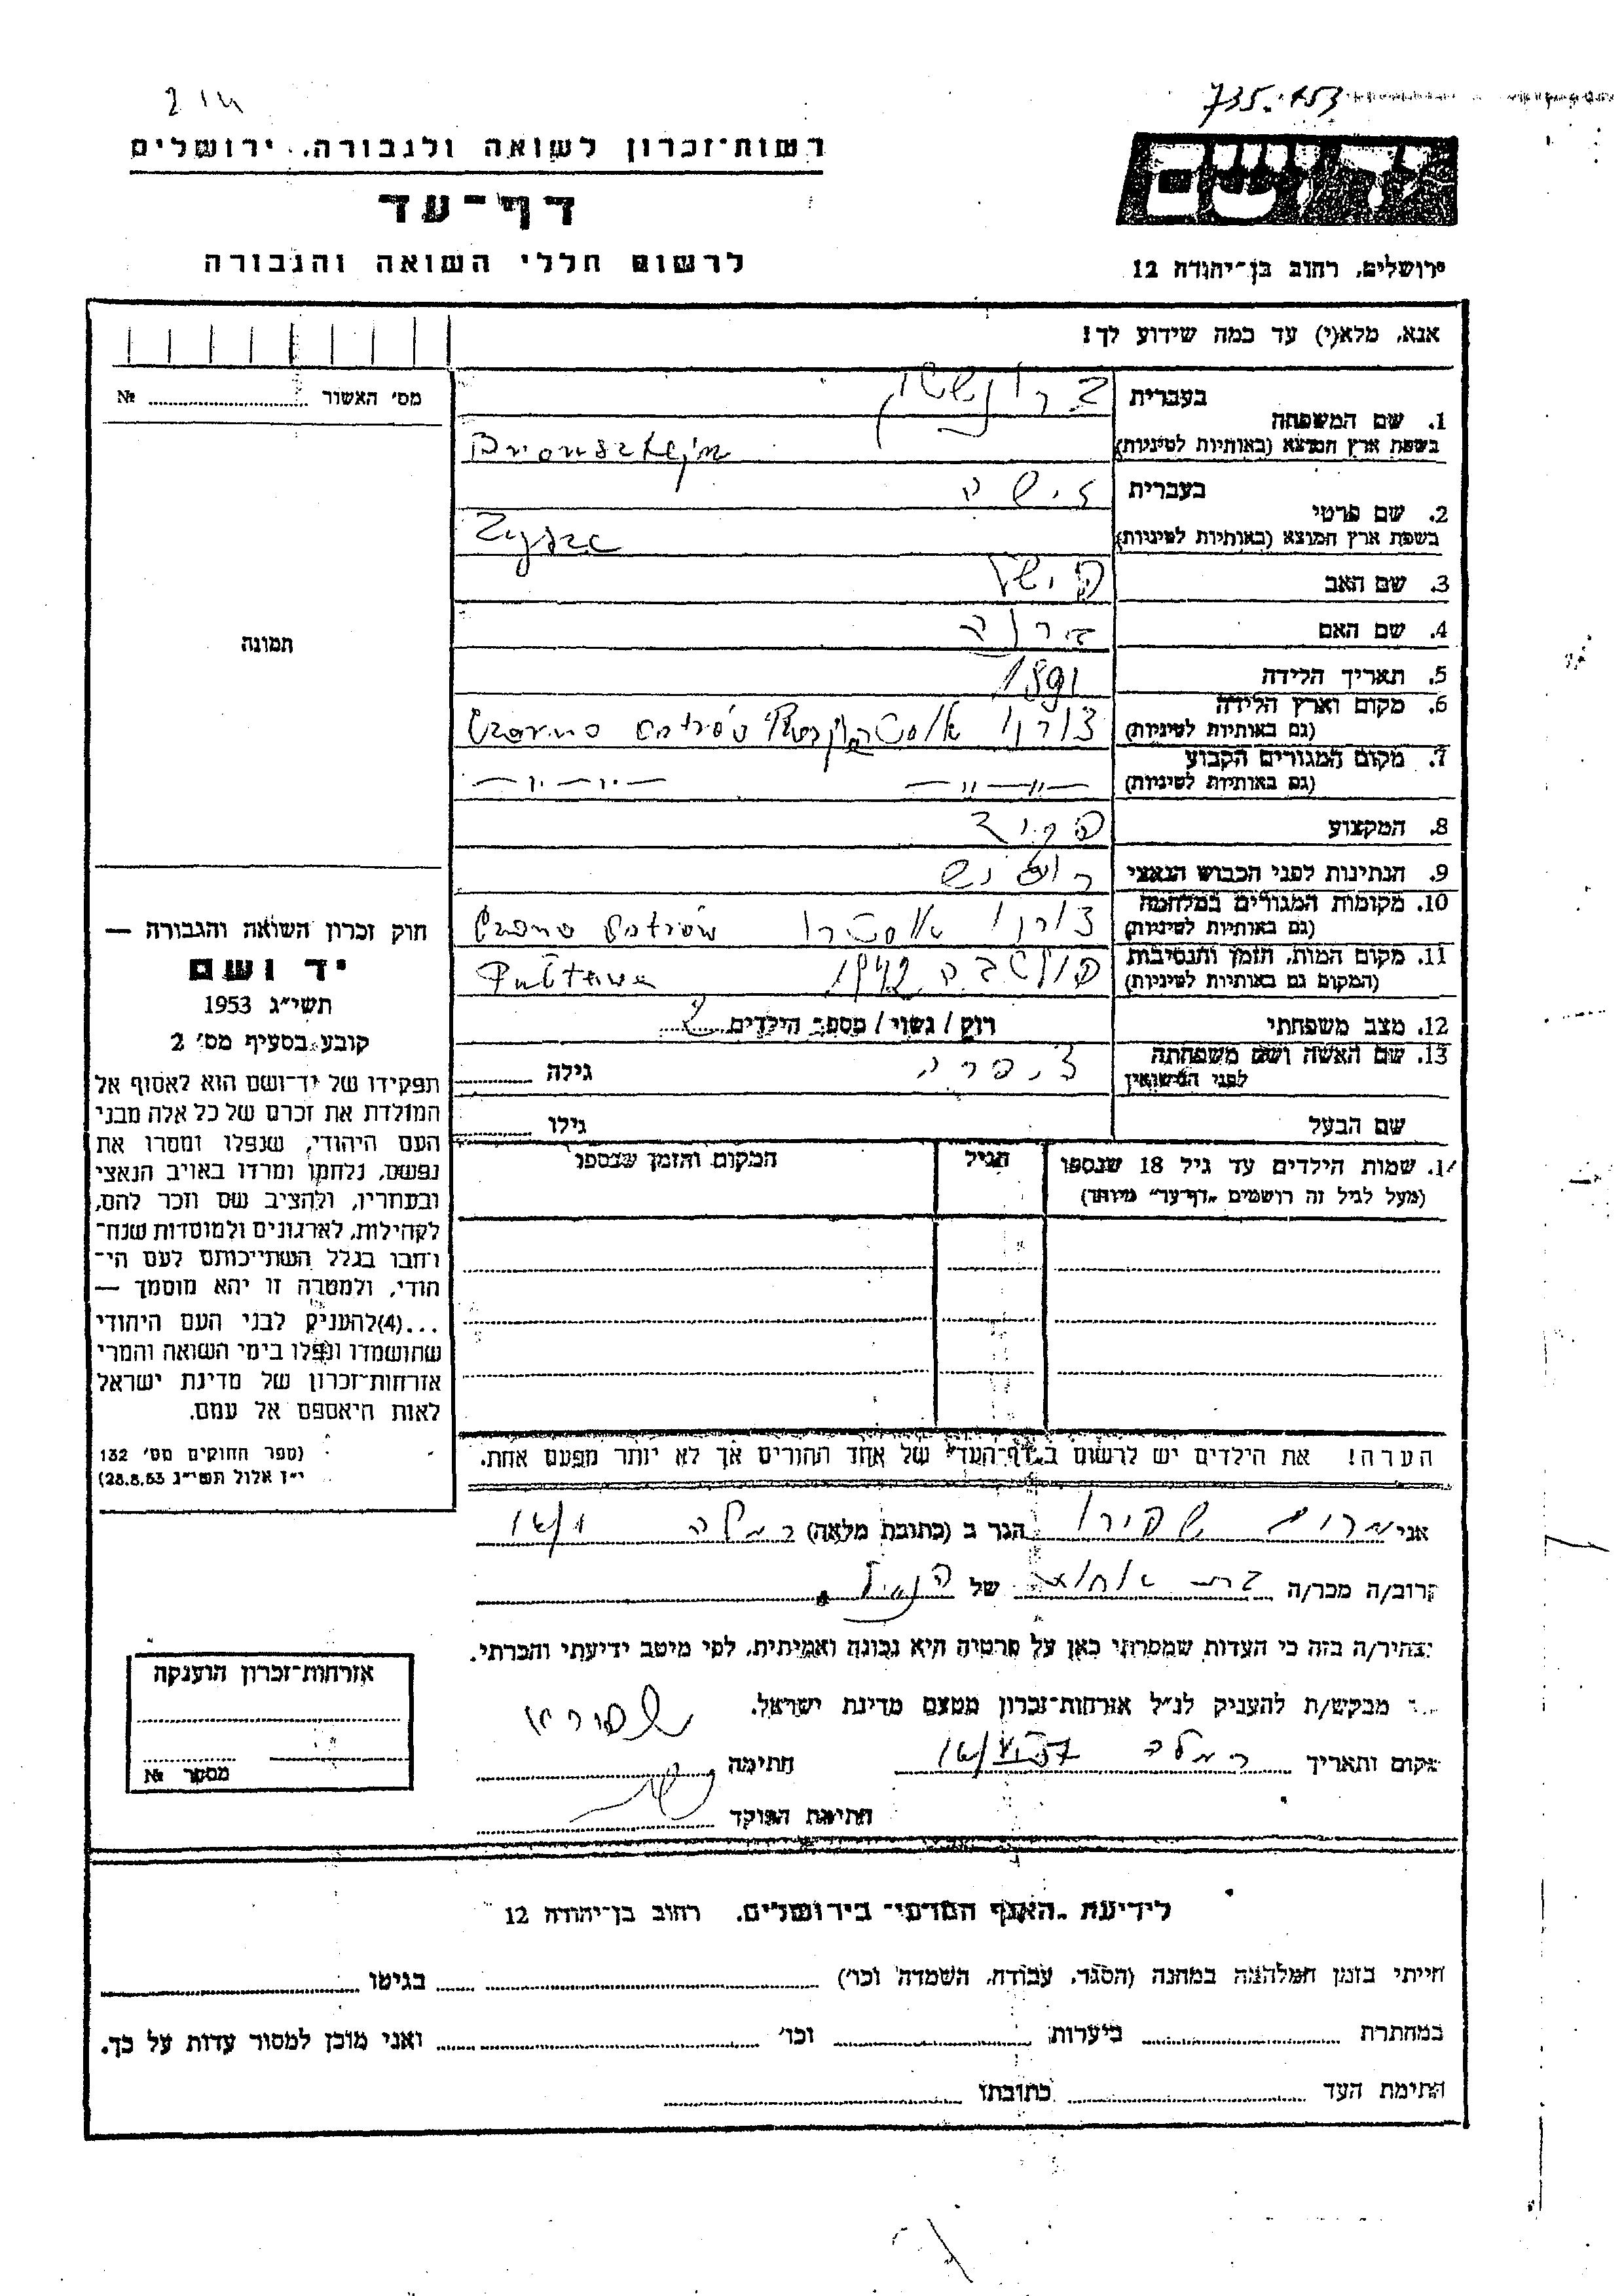 735.153
רשות־זכרון לשואה ולגבורה, ירושלים
דף־עד
לרשום חללי השואה והגבורה
יד ושם
ירושלים, רחוב בן־יהודה 12
אנא, מלא(י) עד כמה שידוע לך!
מס' האשור № 
תמונה
1. שם המשפחה
בעברית ברונשטין
בשפת ארץ המוצא (באותיות לטיניות) Bronsztejn
2. שם פרטי
בעברית זישה
בשפת ארץ המוצא (באותיות לטיניות) Zysze
3. שם האב
4. שם האם
5. תאריך הלידה 1891
6. מקום וארץ הלידה
(גם באותיות לטיניות)
7. מקום המגורים הקבוע
(גם באותיות לטיניות) —״— —״—
8. המקצוע פקיד
9. הנתינות לפני הכבוש הנאצי
10. מקומות המגורים במלחמה
(גם באותיות לטיניות)
11. מקום המות, הזמן והנסיבות
(המקום גם באותיות לטיניות) 1942
12. מצב משפחתי רוק / נשוי / מספר הילדים 2
13. שם האשה ושם משפחתה
לפני הנישואין צפרה גילה
שם הבעל גילו
14. שמות הילדים עד גיל 18 שנספו הגיל המקום והזמן שנספו
(מעל לגיל זה רושמים „דף־עד" מיוחד)
חוק זכרון השואה והגבורה —
יד ושם
תשי״ג 1953
קובע בסעיף מס' 2
תפקידו של יד־ושם הוא לאסוף אל
המולדת את זכרם של כל אלה מבני
העם היהודי, שנפלו ומסרו את
נפשם, נלחמו ומרדו באויב הנאצי
ובעוזריו, ולהציב שם וזכר להם,
לקהילות, לארגונים ולמוסדות שנח־
רחבו בגלל השתייכותם לעם הי־
הודי, ולמטרה זו יהא מוסמך —
...(4)להעניק לבני העם היהודי
שהושמדו ונפלו בימי השואה והמרי
אזרחות־זכרון של מדינת ישראל
לאות היאספם אל עמם.
(ספר החוקים מס' 132
י״ז אלול תשי״ג 28.8.53)
הערה! את הילדים יש לרשום ב„דף־העד" של אחד ההורים אך לא יותר מפעם אחת.
אני שפירו הגר ב (כתובת מלאה) רמלה
קרוב/ה מכר/ה של הנ״ל
מצהיר/ה בזה כי העדות שמסרתי כאן על פרטיה היא נכונה ואמיתית, לפי מיטב ידיעתי והכרתי.
מבקש/ת להעניק לנ״ל אזרחות־זכרון מטעם מדינת ישראל.
מקום ותאריך רמלה חתימה
חתימת הפוקד
אזרחות־זכרון הוענקה
מספר №
לידיעת „האגף המדעי" בירושלים, רחוב בן־יהודה 12
הייתי בזמן המלחמה במחנה (הסגר, עבודה, השמדה וכו') בגיטו
במחתרת ביערות וכו' ואני מוכן למסור עדות על כך.
חתימת העד כתובתו